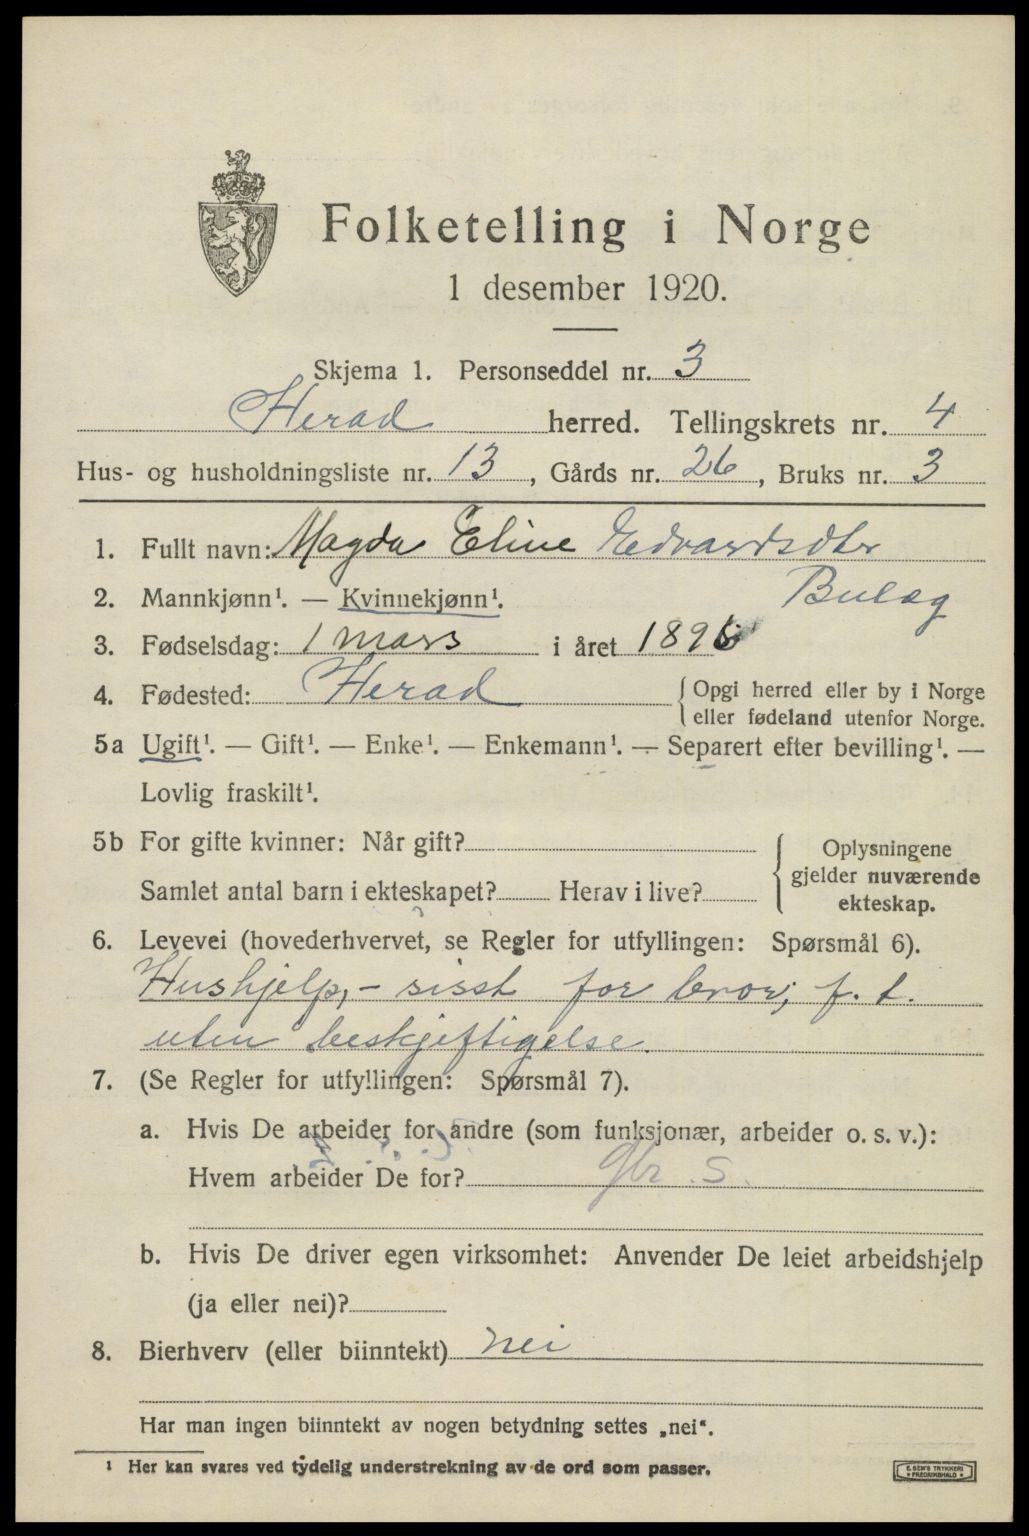 Folketelling i Norge
1 desember 1920.
Skjema 1. Personseddel nr. 3
Herad herred. Tellingskrets nr. 4
Hus- og husholdningsliste nr. 13, Gårds nr. 26, Bruks nr. 3
1. Fullt navn: Magda Eline Edvardsdtr
Bulag
2. Mannkjønn¹. — Kvinnekjønn¹.
3. Fødselsdag: 1 mars i året 1896
4. Fødested: Herad {Opgi herred eller by i Norge
eller fødeland utenfor Norge.
5a Ugift¹. — Gift¹. — Enke¹. — Enkemann¹. — Separert efter bevilling¹. —
Lovlig fraskilt¹.
5b For gifte kvinner: Når gift?
Samlet antal barn i ekteskapet? Herav i live?
{ Oplysningene
gjelder nuværende
ekteskap.
6. Levevei (hovederhvervet, se Regler for utfyllingen: Spørsmål 6).
Hushjelp, - sisst for bror; f. t.
uten beskjeftigelse.
7. (Se Regler for utfyllingen: Spørsmål 7).
a. Hvis De arbeider for andre (som funksjonær, arbeider o. s. v.):
Hvem arbeider De for? Gbr. S.
b. Hvis De driver egen virksomhet: Anvender De leiet arbeidshjelp
(ja eller nei)?
8. Bierhverv (eller biinntekt) nei
Har man ingen biinntekt av nogen betydning settes „nei“.
¹ Her kan svares ved tydelig understrekning av de ord som passer.
E. SEM'S TRYKKERI
FREDRIKSHALD